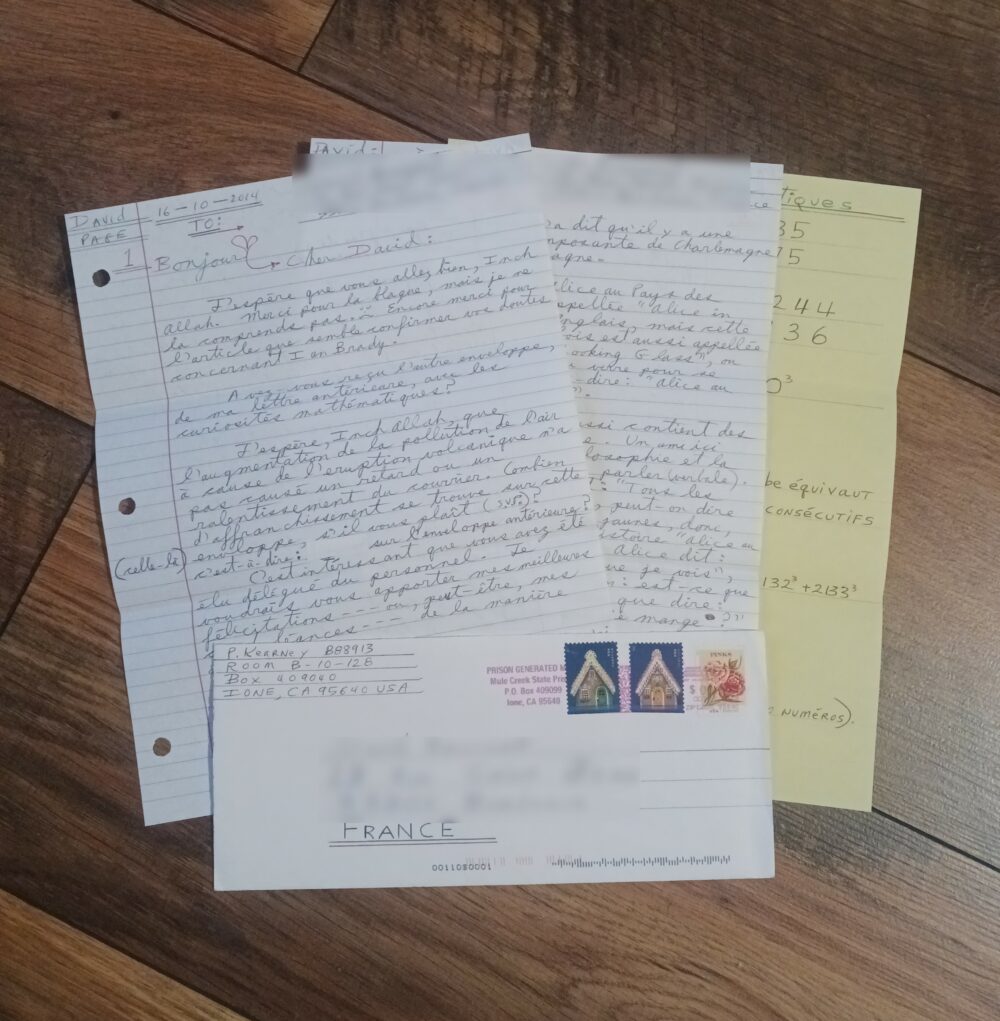 DAVID
PAGE
1
16-10-2014
TO:
Bonjour Cher David:
J'espère que vous allez bien, Inch
allah. Merci pour la blague, mais je ne
la comprends pas. Encore merci pour
l'article que semble confirmer vos doutes
concernant Ian Brady.
Avez-vous reçu l'autre enveloppe,
de ma lettre antérieare, avec les
curiosités mathématiques?
J'espère, Inch Allah, que
l'augmentation de la pollution de l'air
à cause de l'eruption volcanique n'a
pas causé un retard ou un
ralentissement du courrier. Combien
d'affranchissement se trouve sur cette
(celle-là) enveloppe, s'il vous plaît (svp)?
c'est-à-dire: sur l'enveloppe antérieure?
C'est intéressant que vous avez été
élu délégué du personnel. Je
voudrais vous apporter mes meilleures
félicitations --- ou, peut-être, mes
--- de la manière
David-
a dit qu'il y a une
mposante de Charlemagne
agne.
lice au Pays des
appellée "Alice in
nglais, mais cette
ois est aussi appellée
ooking Glass", ou
verre pour se
-dire: "alice au
".
ssi contient des
. Un ami ici
losophie et la
parler (verbale).
: "Tous les
, peut-on dire
jaunes, donc,
stoire "alice au
Alice dit:
ue je vois",
: est-ce que
que dire:
mange ?"
tiques
35
75
244
136
0³
be équivaut
consécutifs
132³ + 2133³
numéros).
P. Kearney BB8913
Room B-10-128
Box 409040
Ione, CA 95640 USA
PRISON GENERATED M
Mule Creek State Pri
P.O. Box 409099
Ione, CA 95640
PINKS
FRANCE
0011080001